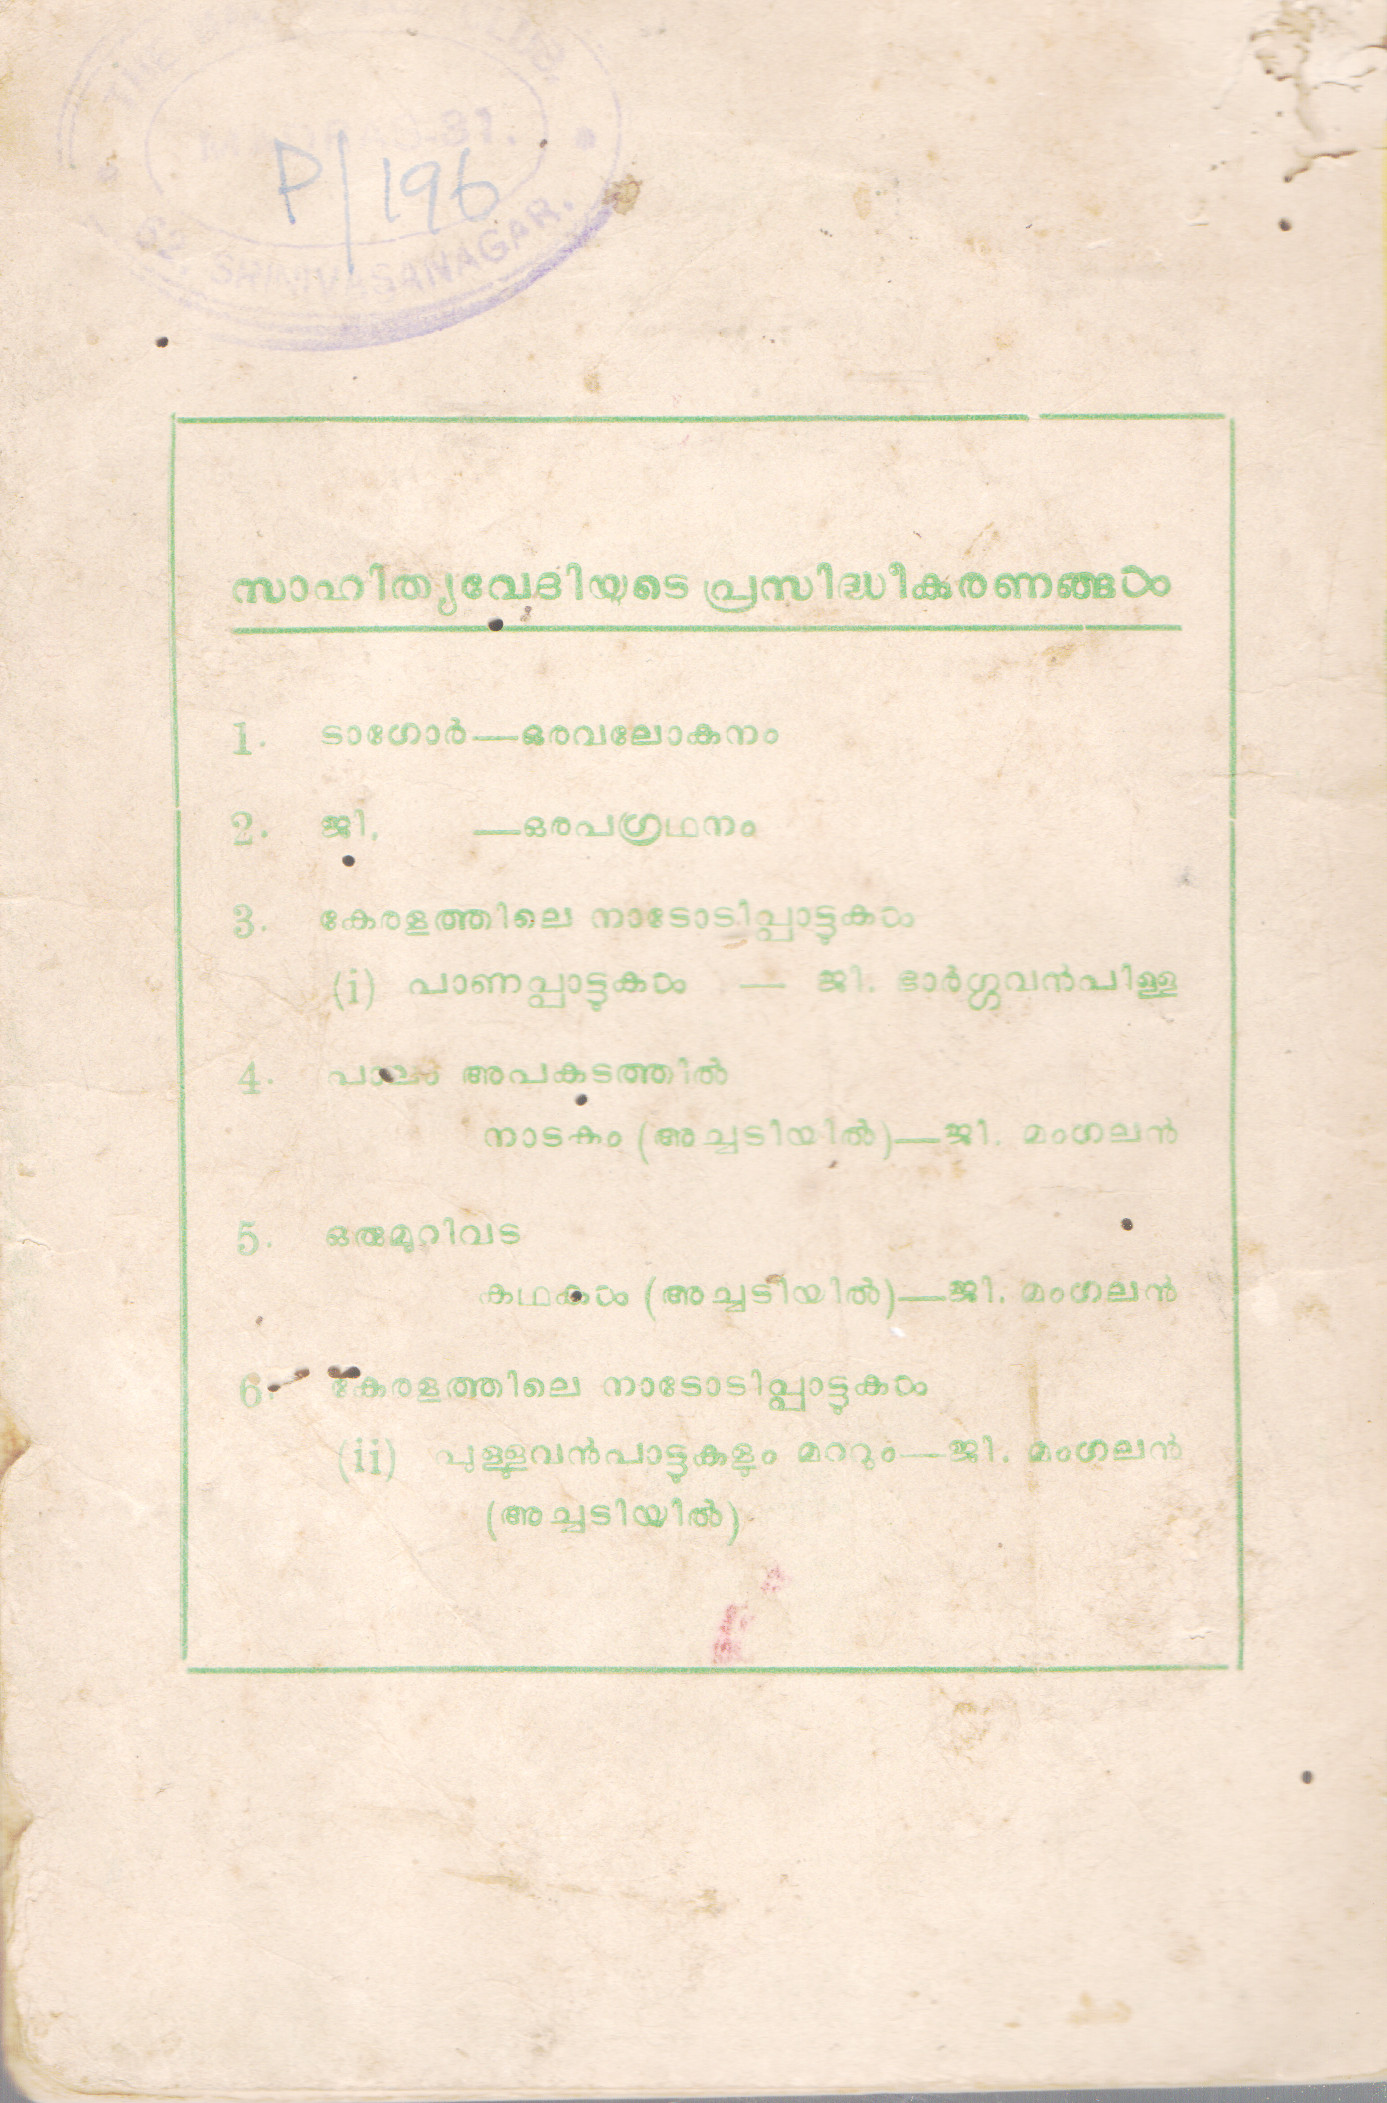 THE
P/196
62, SRINIVASANAGAR.
സാഹിത്യവേദിയുടെ പ്രസിദ്ധീകരണങ്ങൾ
1. ടാഗോർ—ഒരവലോകനം
2. ജി. —ഒരപഗ്രഥനം
3. കേരളത്തിലെ നാടോടിപ്പാട്ടുകൾ
(i) പാണപ്പാട്ടുകൾ — ജി. ഭാർഗ്ഗവൻപിള്ള
4. പാലം അപകടത്തിൽ
നാടകം (അച്ചടിയിൽ)—ജി. മംഗലൻ
5. ഒരുമുറിവട
കഥകൾ (അച്ചടിയിൽ)—ജി. മംഗലൻ
6. കേരളത്തിലെ നാടോടിപ്പാട്ടുകൾ
(ii) പുള്ളുവൻപാട്ടുകളും മററും—ജി. മംഗലൻ
(അച്ചടിയിൽ)